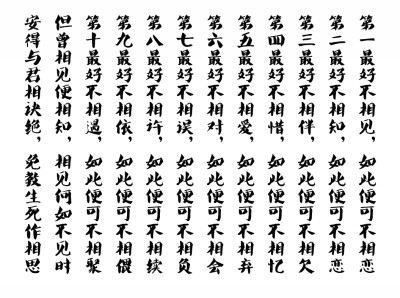 第一最好不相见，如此便可不相恋
第二最好不相知，如此便可不相恋
第三最好不相伴，如此便可不相欠
第四最好不相惜，如此便可不相忆
第五最好不相爱，如此便可不相弃
第六最好不相对，如此便可不相会
第七最好不相误，如此便可不相负
第八最好不相许，如此便可不相续
第九最好不相依，如此便可不相偎
第十最好不相遇，如此便可不相聚
但曾相见便相知，相见何如不见时
安得与君相诀绝，免教生死作相思